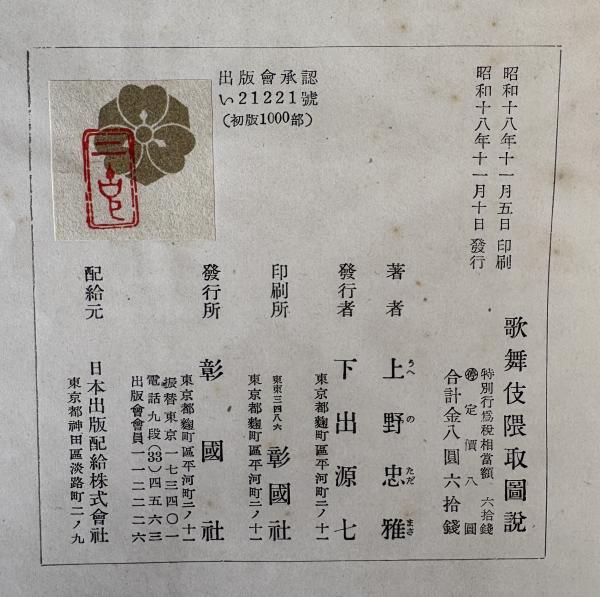 昭和十八年十一月五日印刷
昭和十八年十一月十日發行
出版會承認
い21221號
(初版1000部)
歌舞伎隈取圖說
特別行爲稅相當額 六拾錢
㊕ 定價 八圓
合計金八圓六拾錢
著者 上野忠雅
うへ の ただ まさ
發行者 下出源七
東京都麴町區平河町二ノ十一
印刷所 彰國社
東東三四八六
東京都麴町區平河町二ノ十一
發行所 彰國社
東京都麴町區平河町二ノ十一
振替東京一七三四〇一
電話九段(33)四五六三
出版會會員一一二二二六
配給元 日本出版配給株式會社
東京都神田區淡路町二ノ九